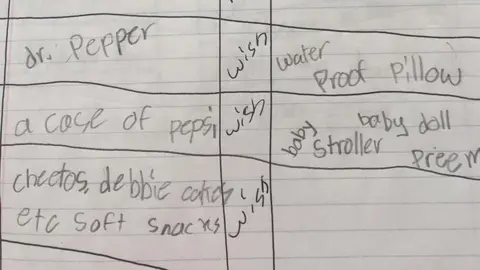 dr. Pepper
wish
water
Proof Pillow
a case of pepsi
wish
baby doll
baby
Stroller Preem
cheetos, debbie
etc soft snacks
wish